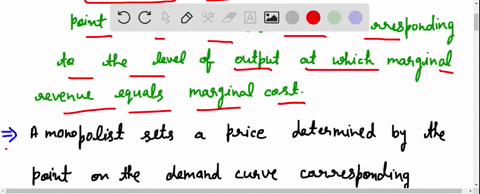 point corresponding
to the level of output at which marginal
revenue equals marginal cost.
⇒ A monopolist sets a price determined by the
point on the demand curve corresponding